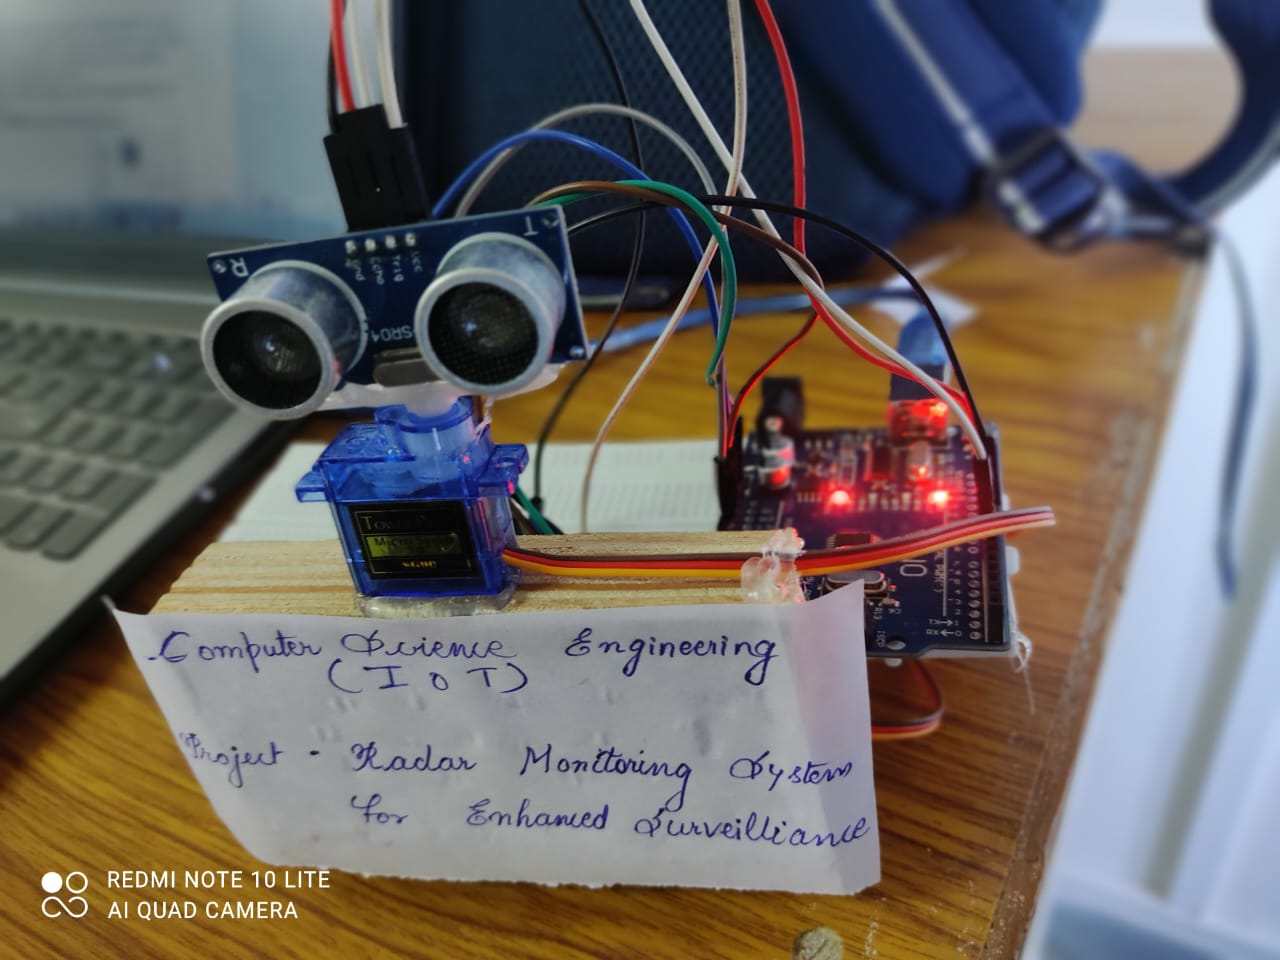 R
T
Gnd
Echo
Trig
Vcc
SR04
Tower P
Micro Servo
SG90
TX→1
RX←0
Computer Science Engineering
(IoT)
Project - Radar Monitoring System
for Enhanced Surveilliance
REDMI NOTE 10 LITE
AI QUAD CAMERA